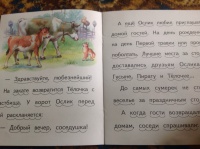 — Здравствуйте, любезнейший!
На закате возвратится Тёлочка с
У ворот Ослик перед
ей раскланяется:
— Добрый вечер, соседушка!
А ещё Ослик любил приглашать
домой гостей. На день рождения
на день Первой травки или просто
Лучшие места за столом
доставались друзьям Ослика
и Тёлочке.
До самых сумерек не
веселье за праздничным
А когда гости возвращались
домам, соседи спрашивали